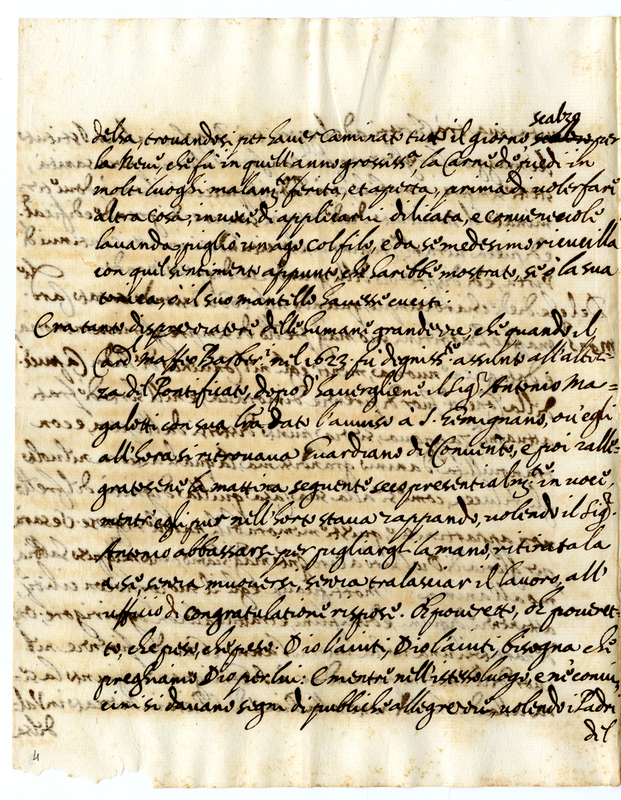 scalzo
della, trovandosi per haver caminato tutto il giorno per
la Neve, che fù in quell'anno grossiss.ª, la Carne de piedi in
molti luoghi malam.te ferita, et aperta, prima di voler fare
altra cosa, in vece di applicarvi delicata, e convenevole
lavanda, pigliò un ago col filo, e da se medesimo ricucilla
con quel sentimento appunto, che harebbe mostrato, se ò la sua
tonica, ò il suo mantello havesse cuciti:
Era tanto disprezzatore delle humane grandezze, che quando il
Card. Maffeo Barber.º nel 1623. fù degniss.e assunto all'altez=
za del Pontificato, doppo d'havergliene il Sig.r Antonio Ma=
galotti con sua lra dato l'avviso à S. Gemignano, ov'egli
all'hora si ritrovava Guardiano del Convento, e poi ralle=
gratosene la mattina seguente seco presentialm.te in voce,
mentr'egli pur nell'horto stava zappando, volendo il Sig.r
Antonio abbassarsi per pigliargli la mano, ritiratala
a se, senza muoversi, senza tralasciar il lavoro, all'
uffitio di congratulatione rispose. Oh poveretto, Oh poveret=
to, che peso, che peso: Dio l'aiuti, Dio l'aiuti, bisogna che
preghiamo Dio per lui: E mentre nell'istesso luogo, e ne' convi=
cini si davano segni di publiche allegrezze, volendo i Padri
del
4